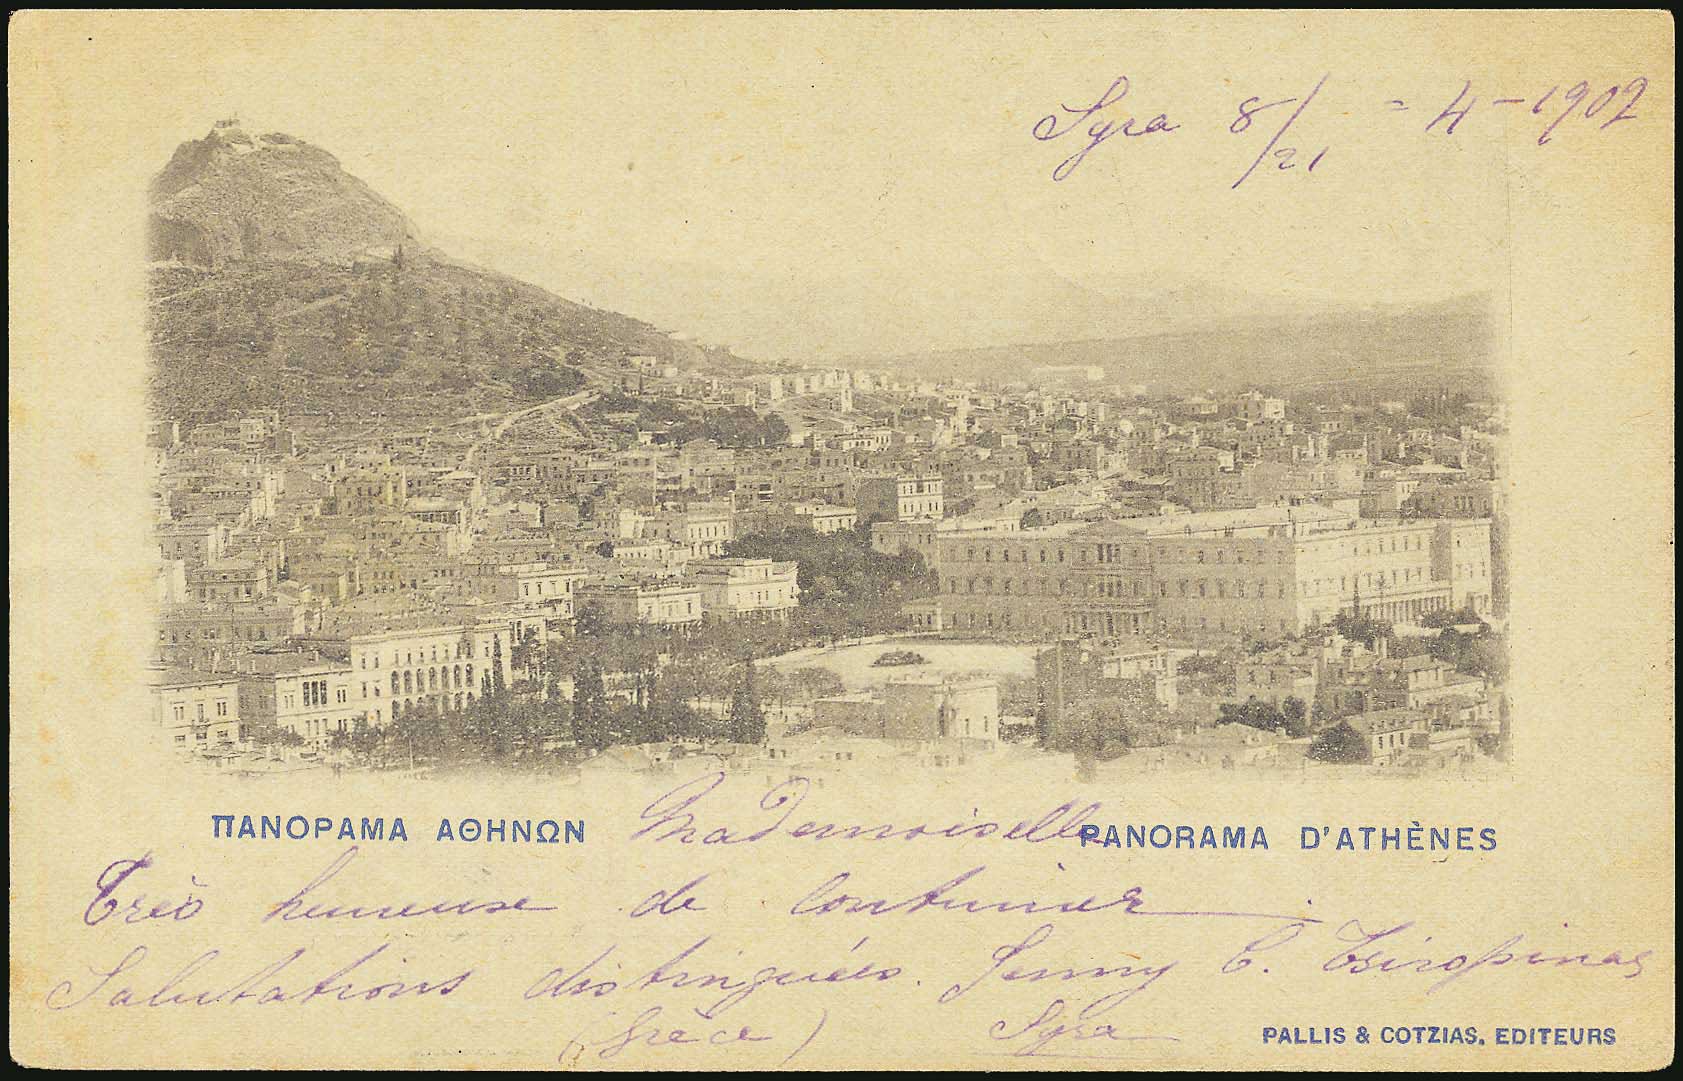 Syra 8/21 = 4 - 1902
ΠΑΝΟΡΑΜΑ ΑΘΗΝΩΝ
Mademoiselle
PANORAMA D'ATHÈNES
Très heureuse de continuer.
Salutations distinguées. Jenny C. Tsiropinas
(Grèce) Syra
PALLIS & COTZIAS, EDITEURS